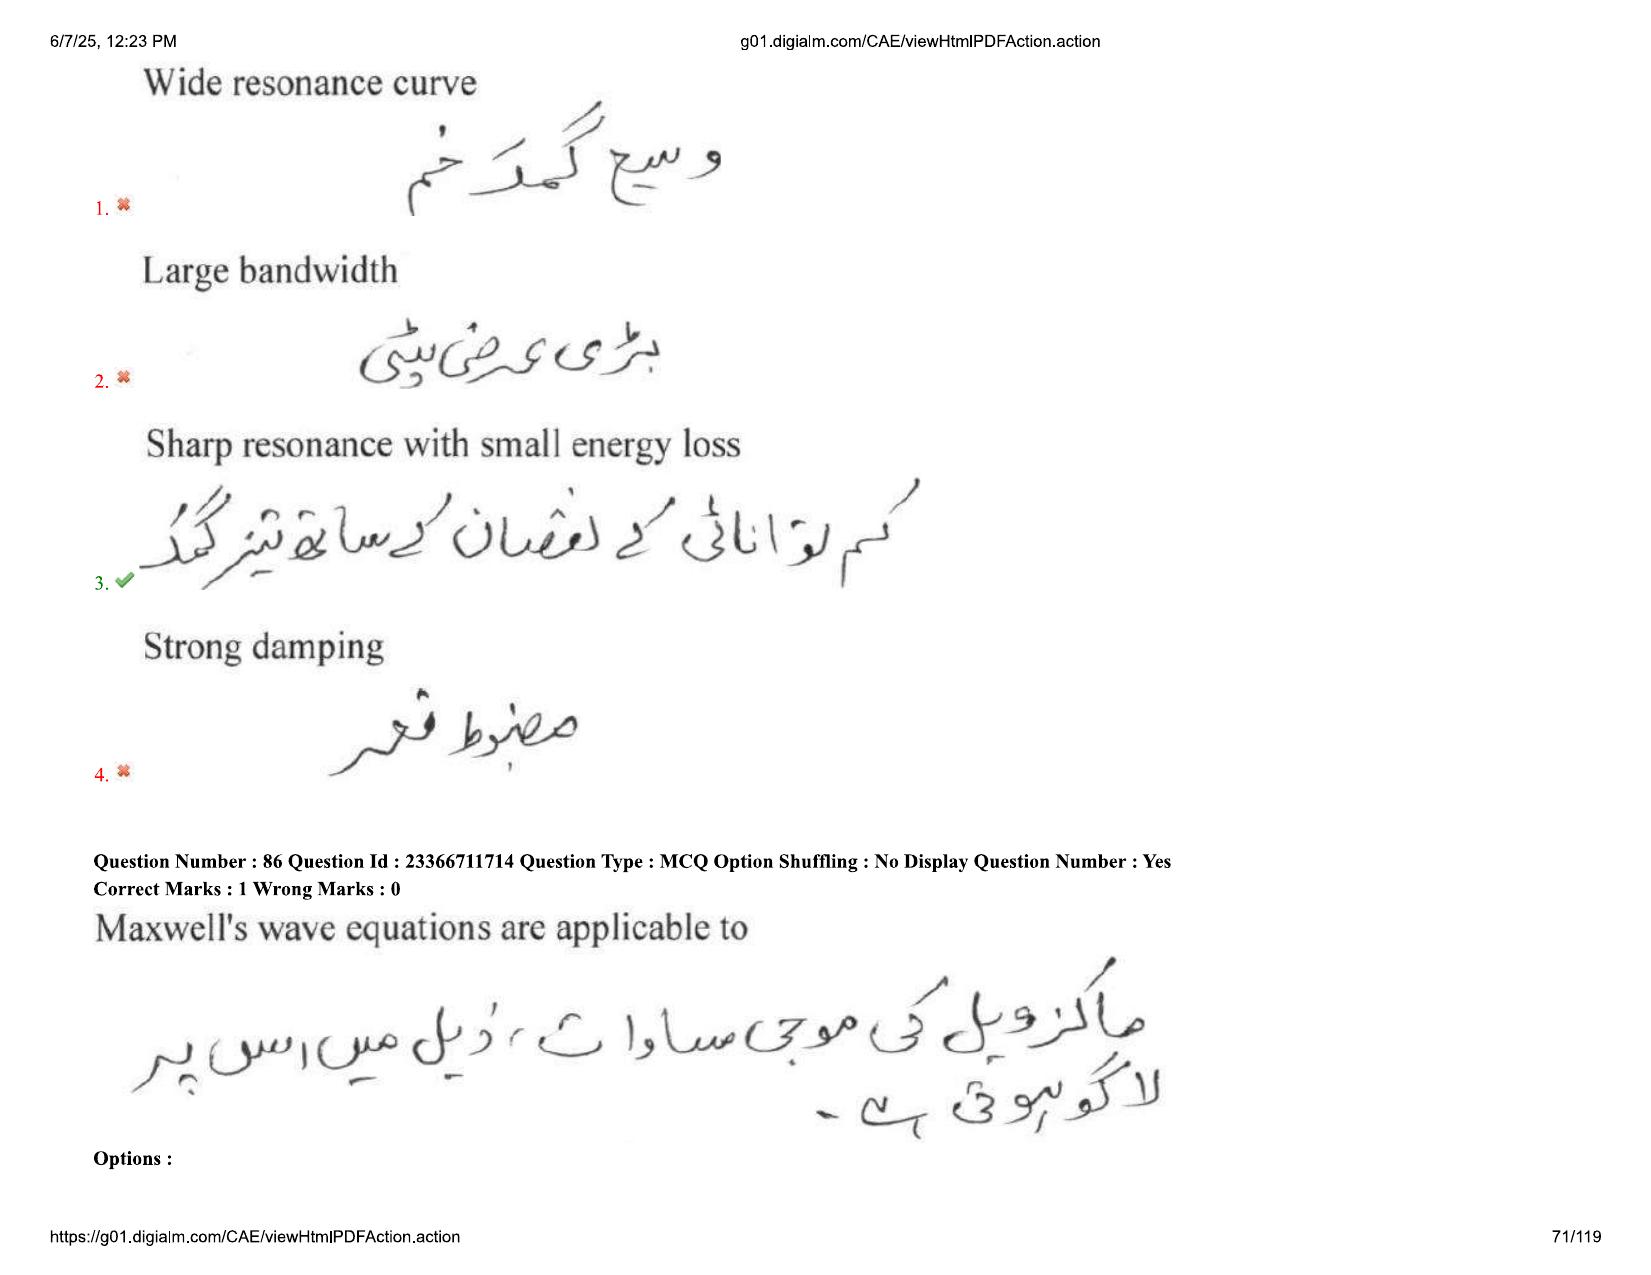 6/7/25, 12:23 PM g01.digialm.com/CAE/viewHtmlPDFAction.action
Wide resonance curve
وسیع گمگ خم
1.
Large bandwidth
بڑی عرضی پٹی
2.
Sharp resonance with small energy loss
کم توانائی کے نقصان کے ساتھ تیز گمگ
3.
Strong damping
مضبوط قعر
4.
Question Number : 86 Question Id : 23366711714 Question Type : MCQ Option Shuffling : No Display Question Number : Yes
Correct Marks : 1 Wrong Marks : 0
Maxwell's wave equations are applicable to
ماکزویل کی موجی مساوات، ذیل میں اس پر
لاگو ہوتی ہے۔
Options :
https://g01.digialm.com/CAE/viewHtmlPDFAction.action 71/119